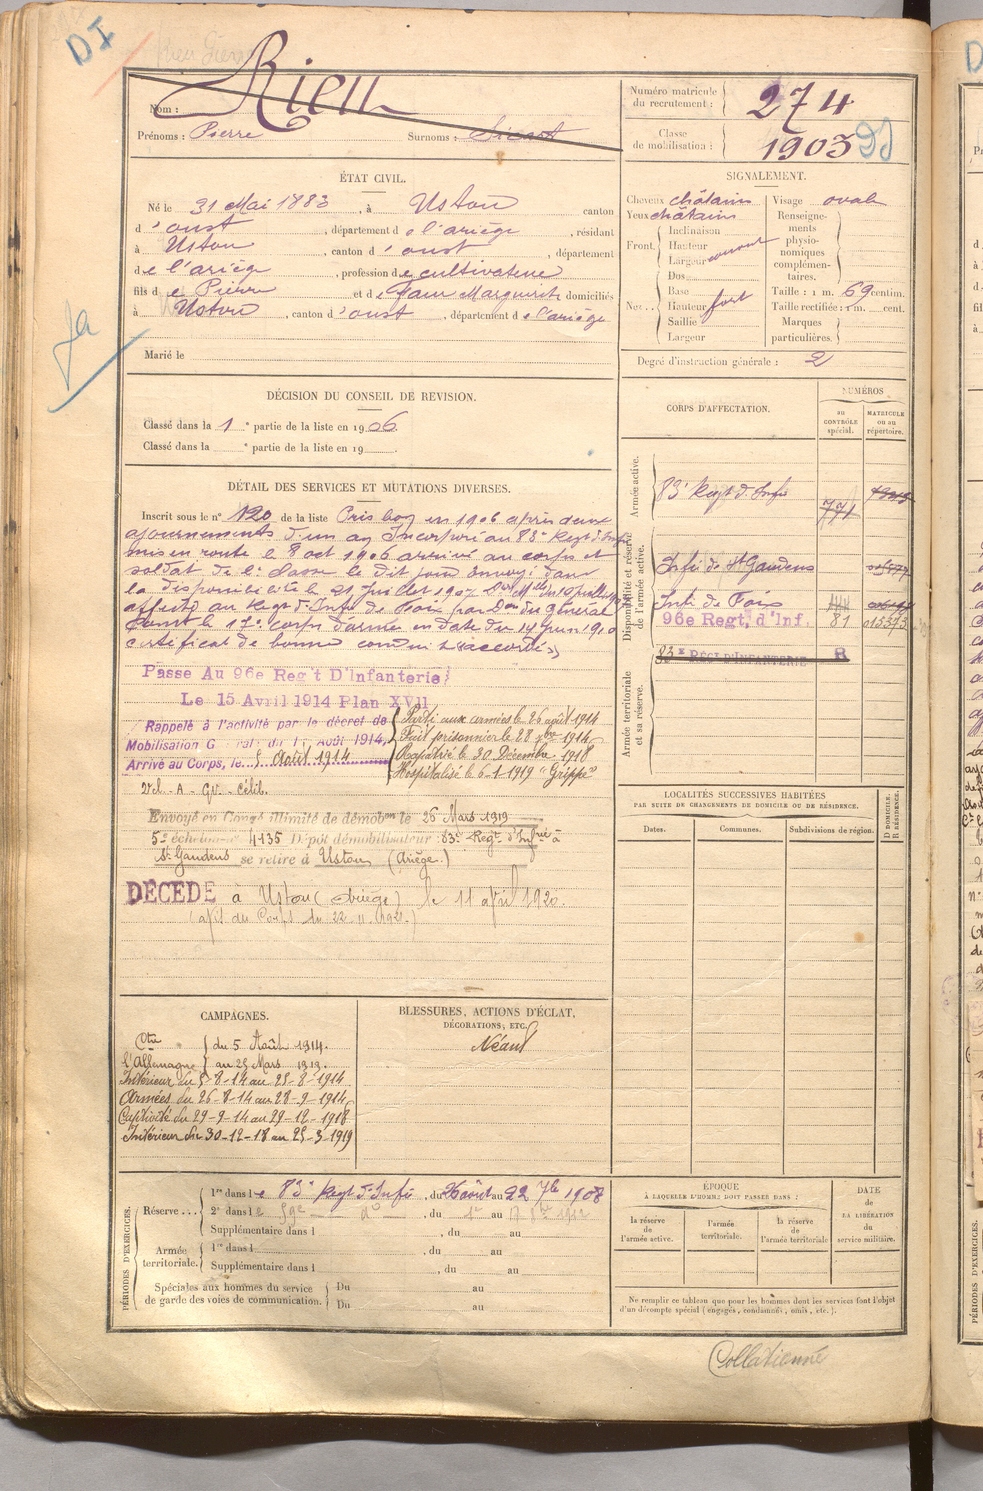 DI
Rieu
Nom :
Prénoms : Pierre Surnoms :
Numéro matricule du recrutement : 274
Classe de mobilisation : 1903
ÉTAT CIVIL.
Né le 31 Mai 1883, à Ustou canton
d'oust, département de l'ariège, résidant
à Ustou, canton d'oust, département
de l'ariège, profession de cultivateur
fils de Pierre et de Faur Marguerite domiciliés
à Ustou, canton d'oust, département de l'ariège
Marié le
SIGNALEMENT.
Cheveux châtains Visage oval
Yeux châtains Renseignements physionomiques complémentaires.
Front. Inclinaison
Hauteur
Largeur
Dos
Nez. Base
Hauteur fort
Saillie
Largeur
Taille : 1 m. 69 centim.
Taille rectifiée : 1 m. cent.
Marques particulières.
Degré d'instruction générale : 2
DÉCISION DU CONSEIL DE REVISION.
Classé dans la 1e partie de la liste en 1906
Classé dans la e partie de la liste en 19
DÉTAIL DES SERVICES ET MUTATIONS DIVERSES.
Inscrit sous le n° 120 de la liste Pris bon en 1906 après deux
ajournements d'un an Incorporé au 83e Regt d'Infie
mis en route le 8 oct 1906 arrivé au corps et
soldat de 2e classe le dit jour Envoyé dans
la disponibilité le 21 Juillet 1907
affecté au Regt d'Infie de Foix par Don du général
Comt le 17e corps d'armée en date du 14 Juin 1910
certificat de bonne conduite accordé
Passe Au 96e Regt D'Infanterie
Le 15 Avril 1914 Plan XVII
Rappelé à l'activité par le décret de
Mobilisation G ral du 1r Août 1914,
Arrivé au Corps, le 5 Août 1914
Parti aux armées le 26 août 1914
Fait prisonnier le 28 7bre 1914
Rapatrié le 30 Décembre 1918
Hospitalisé le 6-1-1919 "Grippe"
Vel - A - Gv - célib.
Envoyé en Congé illimité de démobon le 26 Mars 1919
5e échelon n° 4135 Dépôt démobilisateur 83e Regt d'Infie à
St Gaudens se retire à Ustou (Ariège.)
DÉCÉDÉ à Ustou (Ariège) le 11 avril 1920.
CORPS D'AFFECTATION.
NUMÉROS
au CONTRÔLE spécial.
MATRICULE ou au répertoire.
Armée active.
83e Regt d'Infie 771
Disponibilité et réserve de l'armée active.
Infie de St Gaudens
Infie de Foix
96e Regt, d'Inf. 81 015373
83e RÉGt D'INFANTERIE R
Armée territoriale et sa réserve.
LOCALITÉS SUCCESSIVES HABITÉES
PAR SUITE DE CHANGEMENTS DE DOMICILE OU DE RÉSIDENCE.
Dates. Communes. Subdivisions de région. D DOMICILE. R RÉSIDENCE.
CAMPAGNES.
Ctre l'Allemagne du 5 Août 1914.
au 25 Mars 1919.
Intérieur du 5-8-14 au 25-8-1914
Armées du 26-8-14 au 28-9-1914
Captivité du 29-9-14 au 29-12-1918
Intérieur du 30-12-18 au 25-3-1919
BLESSURES, ACTIONS D'ÉCLAT,
DÉCORATIONS, ETC.
Néant
PÉRIODES D'EXERCICES.
Réserve... 1re dans le 83e Regt d'Infie, du 26 août au 22 7bre 1908
2e dans le 59e, du 1er au
Supplémentaire dans l, du au
Armée territoriale. 1re dans l, du au
Supplémentaire dans l, du au
Spéciales aux hommes du service de garde des voies de communication. Du au
Du au
ÉPOQUE
À LAQUELLE L'HOMME DOIT PASSER DANS :
la réserve de l'armée active. l'armée territoriale. la réserve de l'armée territoriale
DATE de LA LIBÉRATION du service militaire.
Ne remplir ce tableau que pour les hommes dont les services font l'objet
d'un décompte spécial (engagés, condamnés, omis, etc.).
Collationné